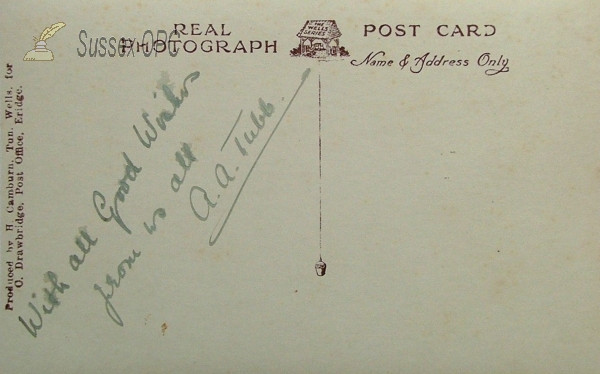 Sussex-OPC
REAL PHOTOGRAPH
THE WELLS SERIES
POST CARD
Name & Address Only
Produced by H. Camburn, Tun. Wells, for
O. Drawbridge, Post Office, Eridge.
With all Good Wishes
from us all
A. A. Tubb.